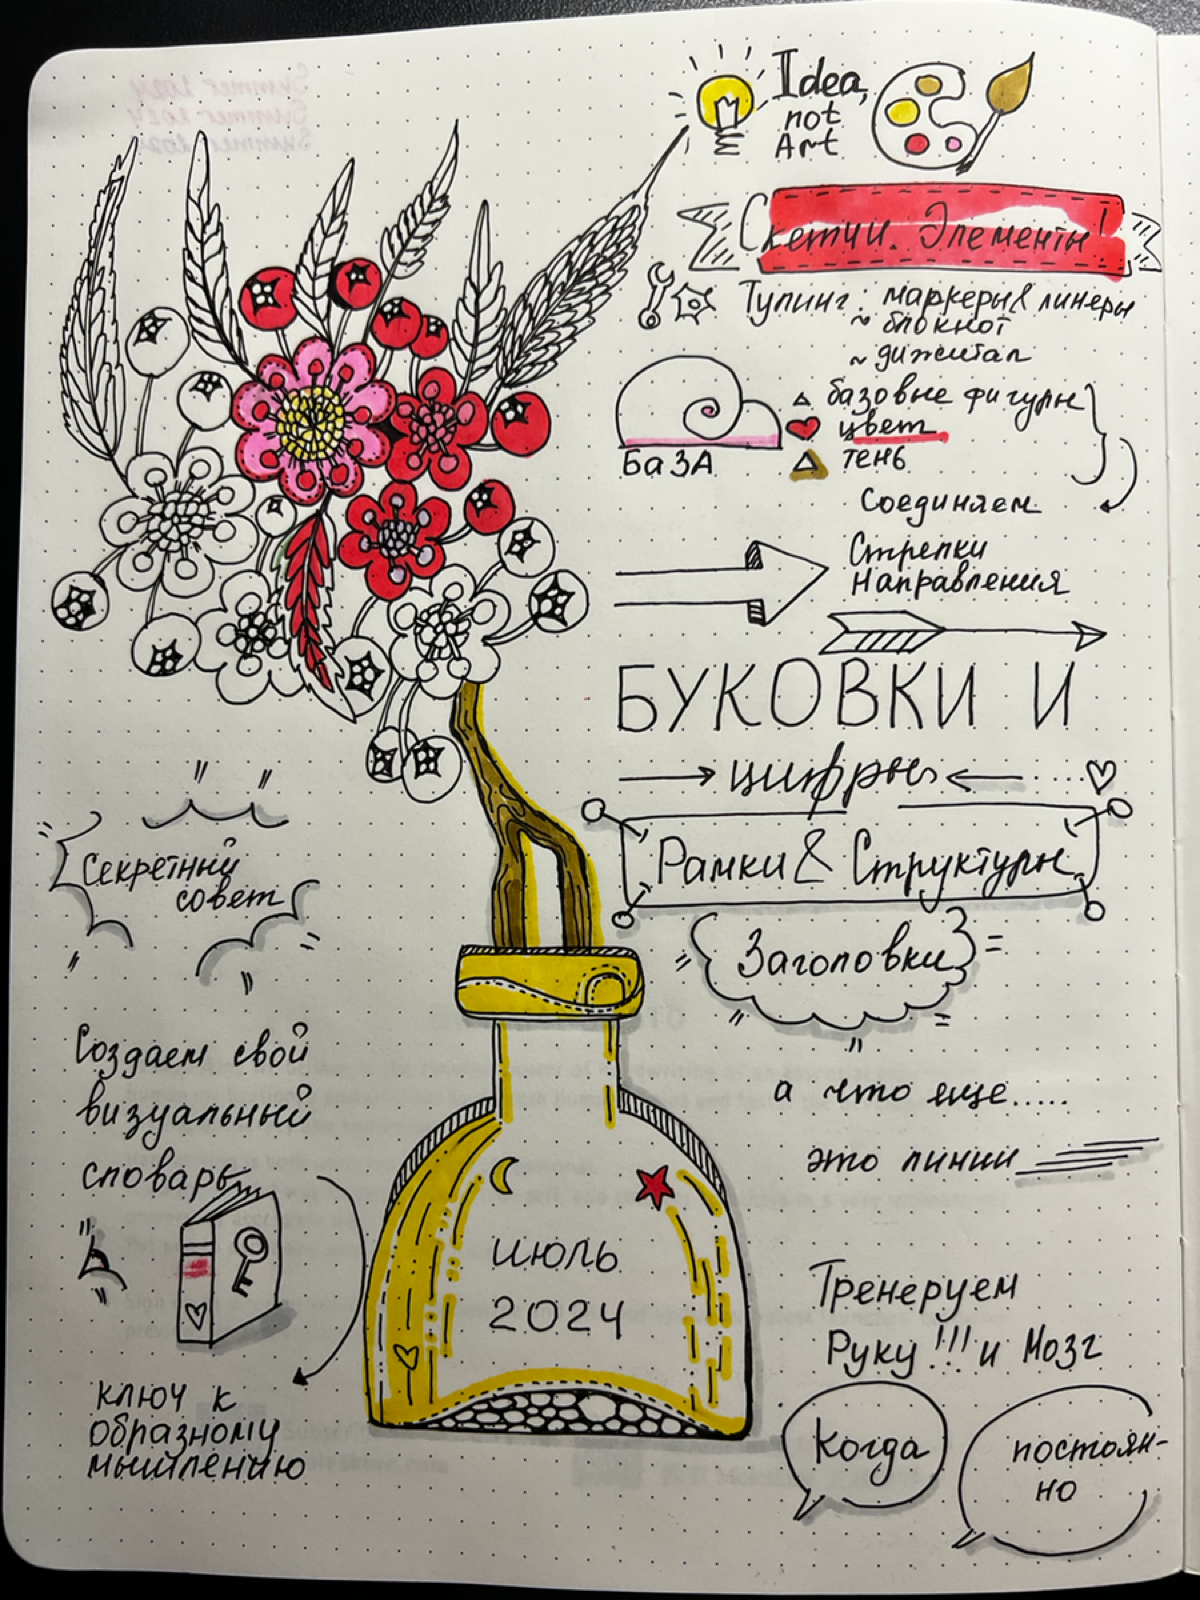 Idea,
not
Art
Скетчи. Элементы!
Тулинг: маркеры & линеры
~ блокнот
~ диджитал
базовые фигуры
цвет
тень
БаЗА
Соединяем
Стрелки
Направления
БУКОВКИ И
цифры
Рамки & Структуры
Заголовки
а что еще.....
это линии
Тренеруем
Руку!!! и Мозг
Когда
постоян-
но
Секретный
совет
Создаем свой
визуальный
словарь
ключ к
образному
мышлению
июль
2024
Summer 2024
Summer 2024
Summer 2024